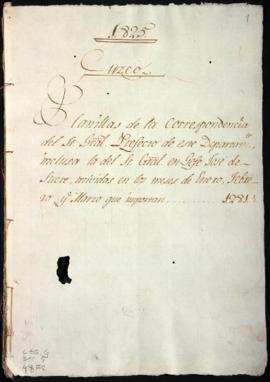 1
1825
Cuzco
Planillas de la Correspondencia
del Sr. Gral. Prefecto de este Departamto.
inclusa la del Sr. Gral. en Gefe Jose de
Sucre, recividas en los meses de Enero, Febre
ro y Marzo que importan